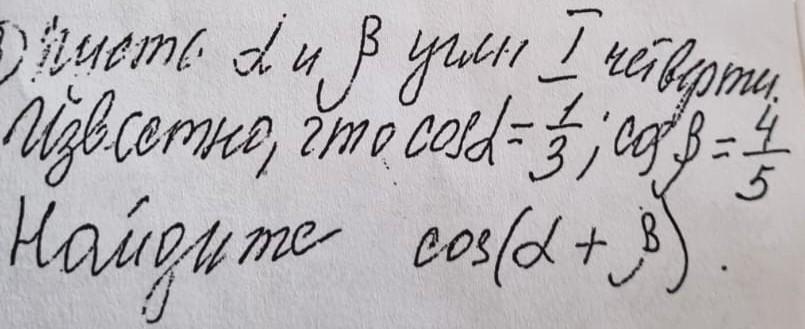 ) Пусть α и β углы I четверти.
Известно, что cosα = 1/3; cosβ = 4/5
Найдите cos(α + β).